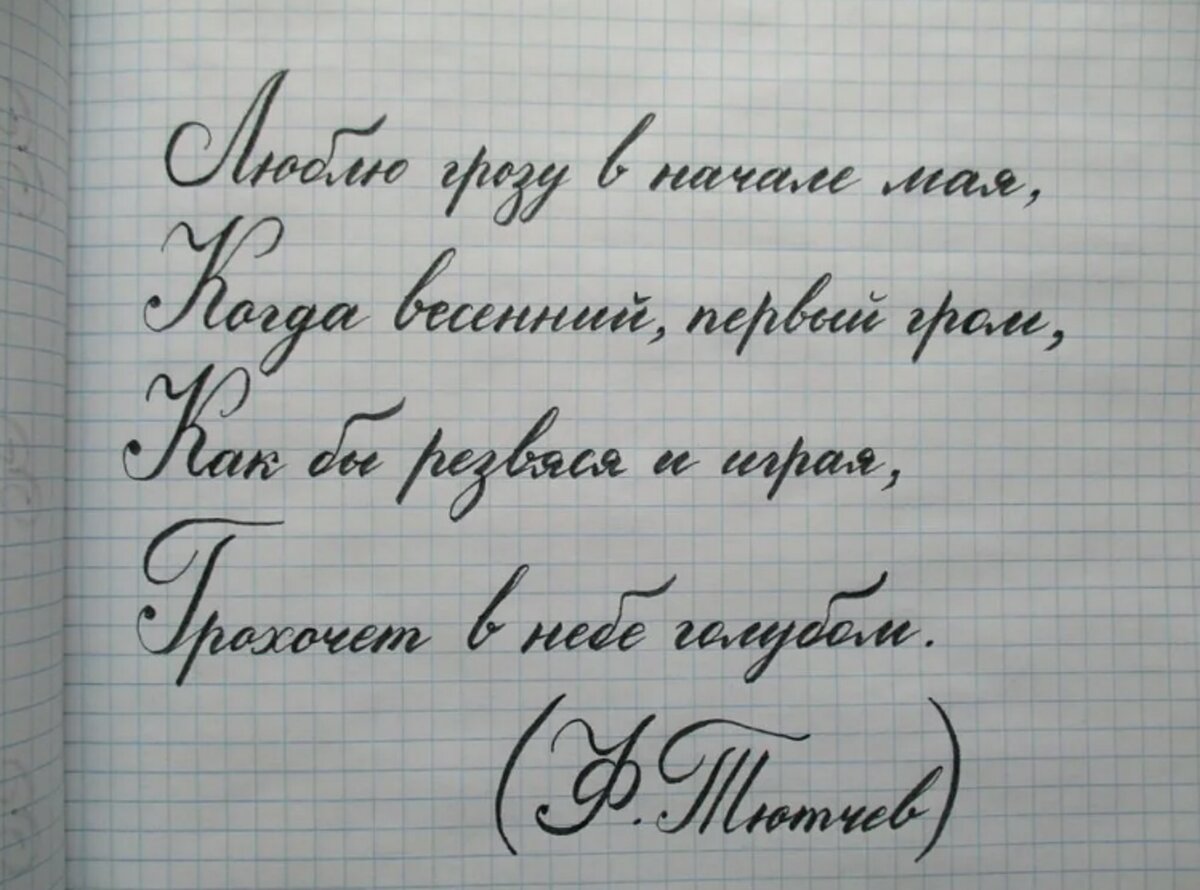 Люблю грозу в начале мая,
Когда весенний, первый гром,
Как бы резвяся и играя,
Грохочет в небе голубом.
(Ф. Тютчев)